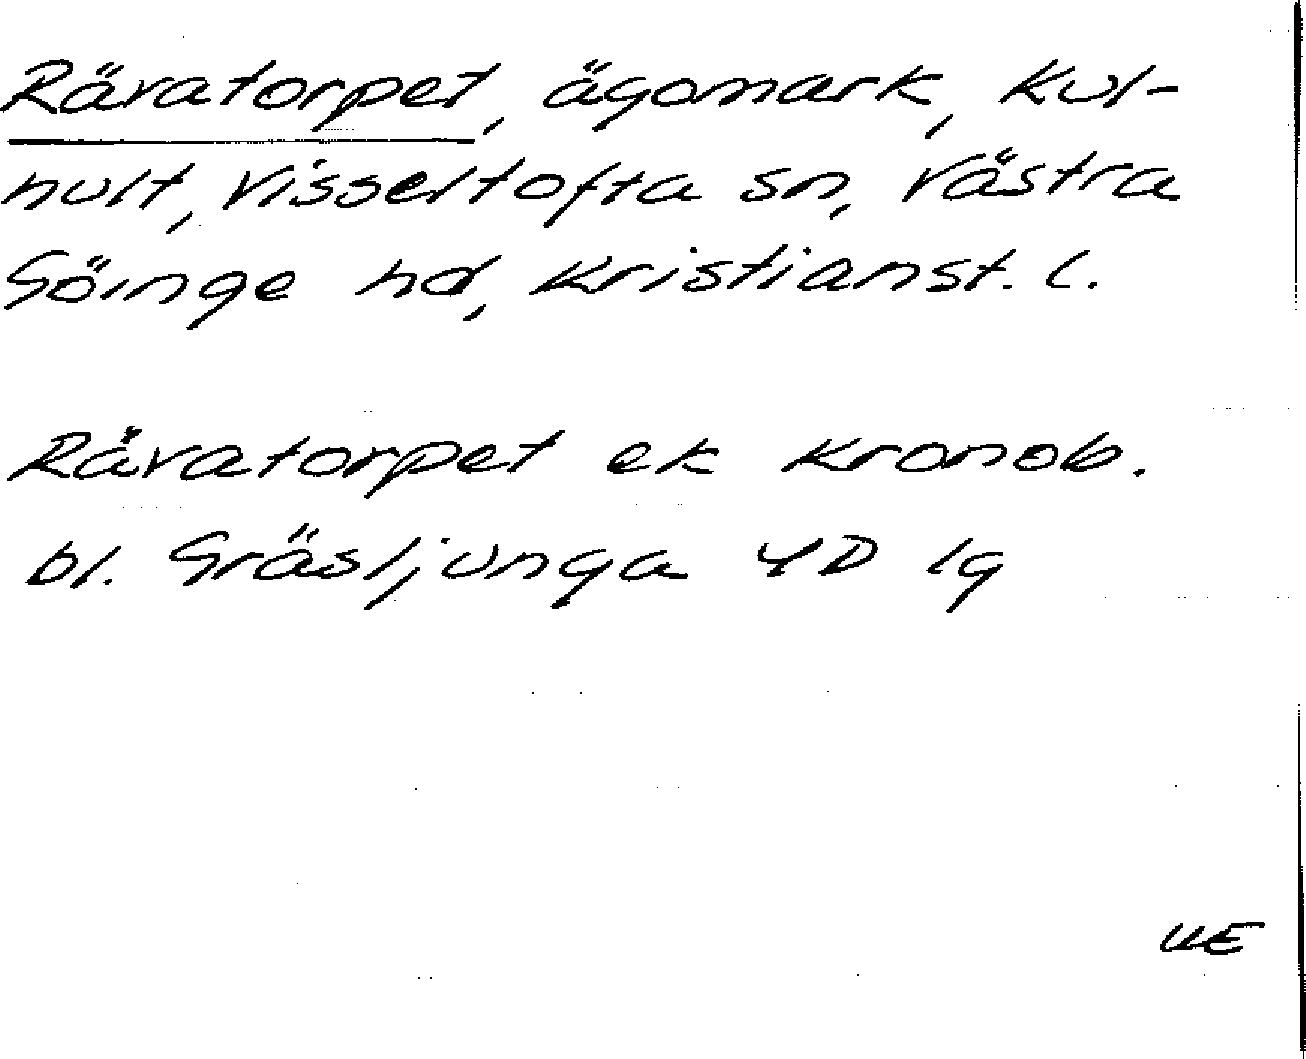 Rävatorpet, ägomark, Kul-
hult, Visseltofta sn, Västra
Göinge hd, Kristianst. l.
Rävatorpet ek Kronob.
bl. Gräsljunga 4D 1g